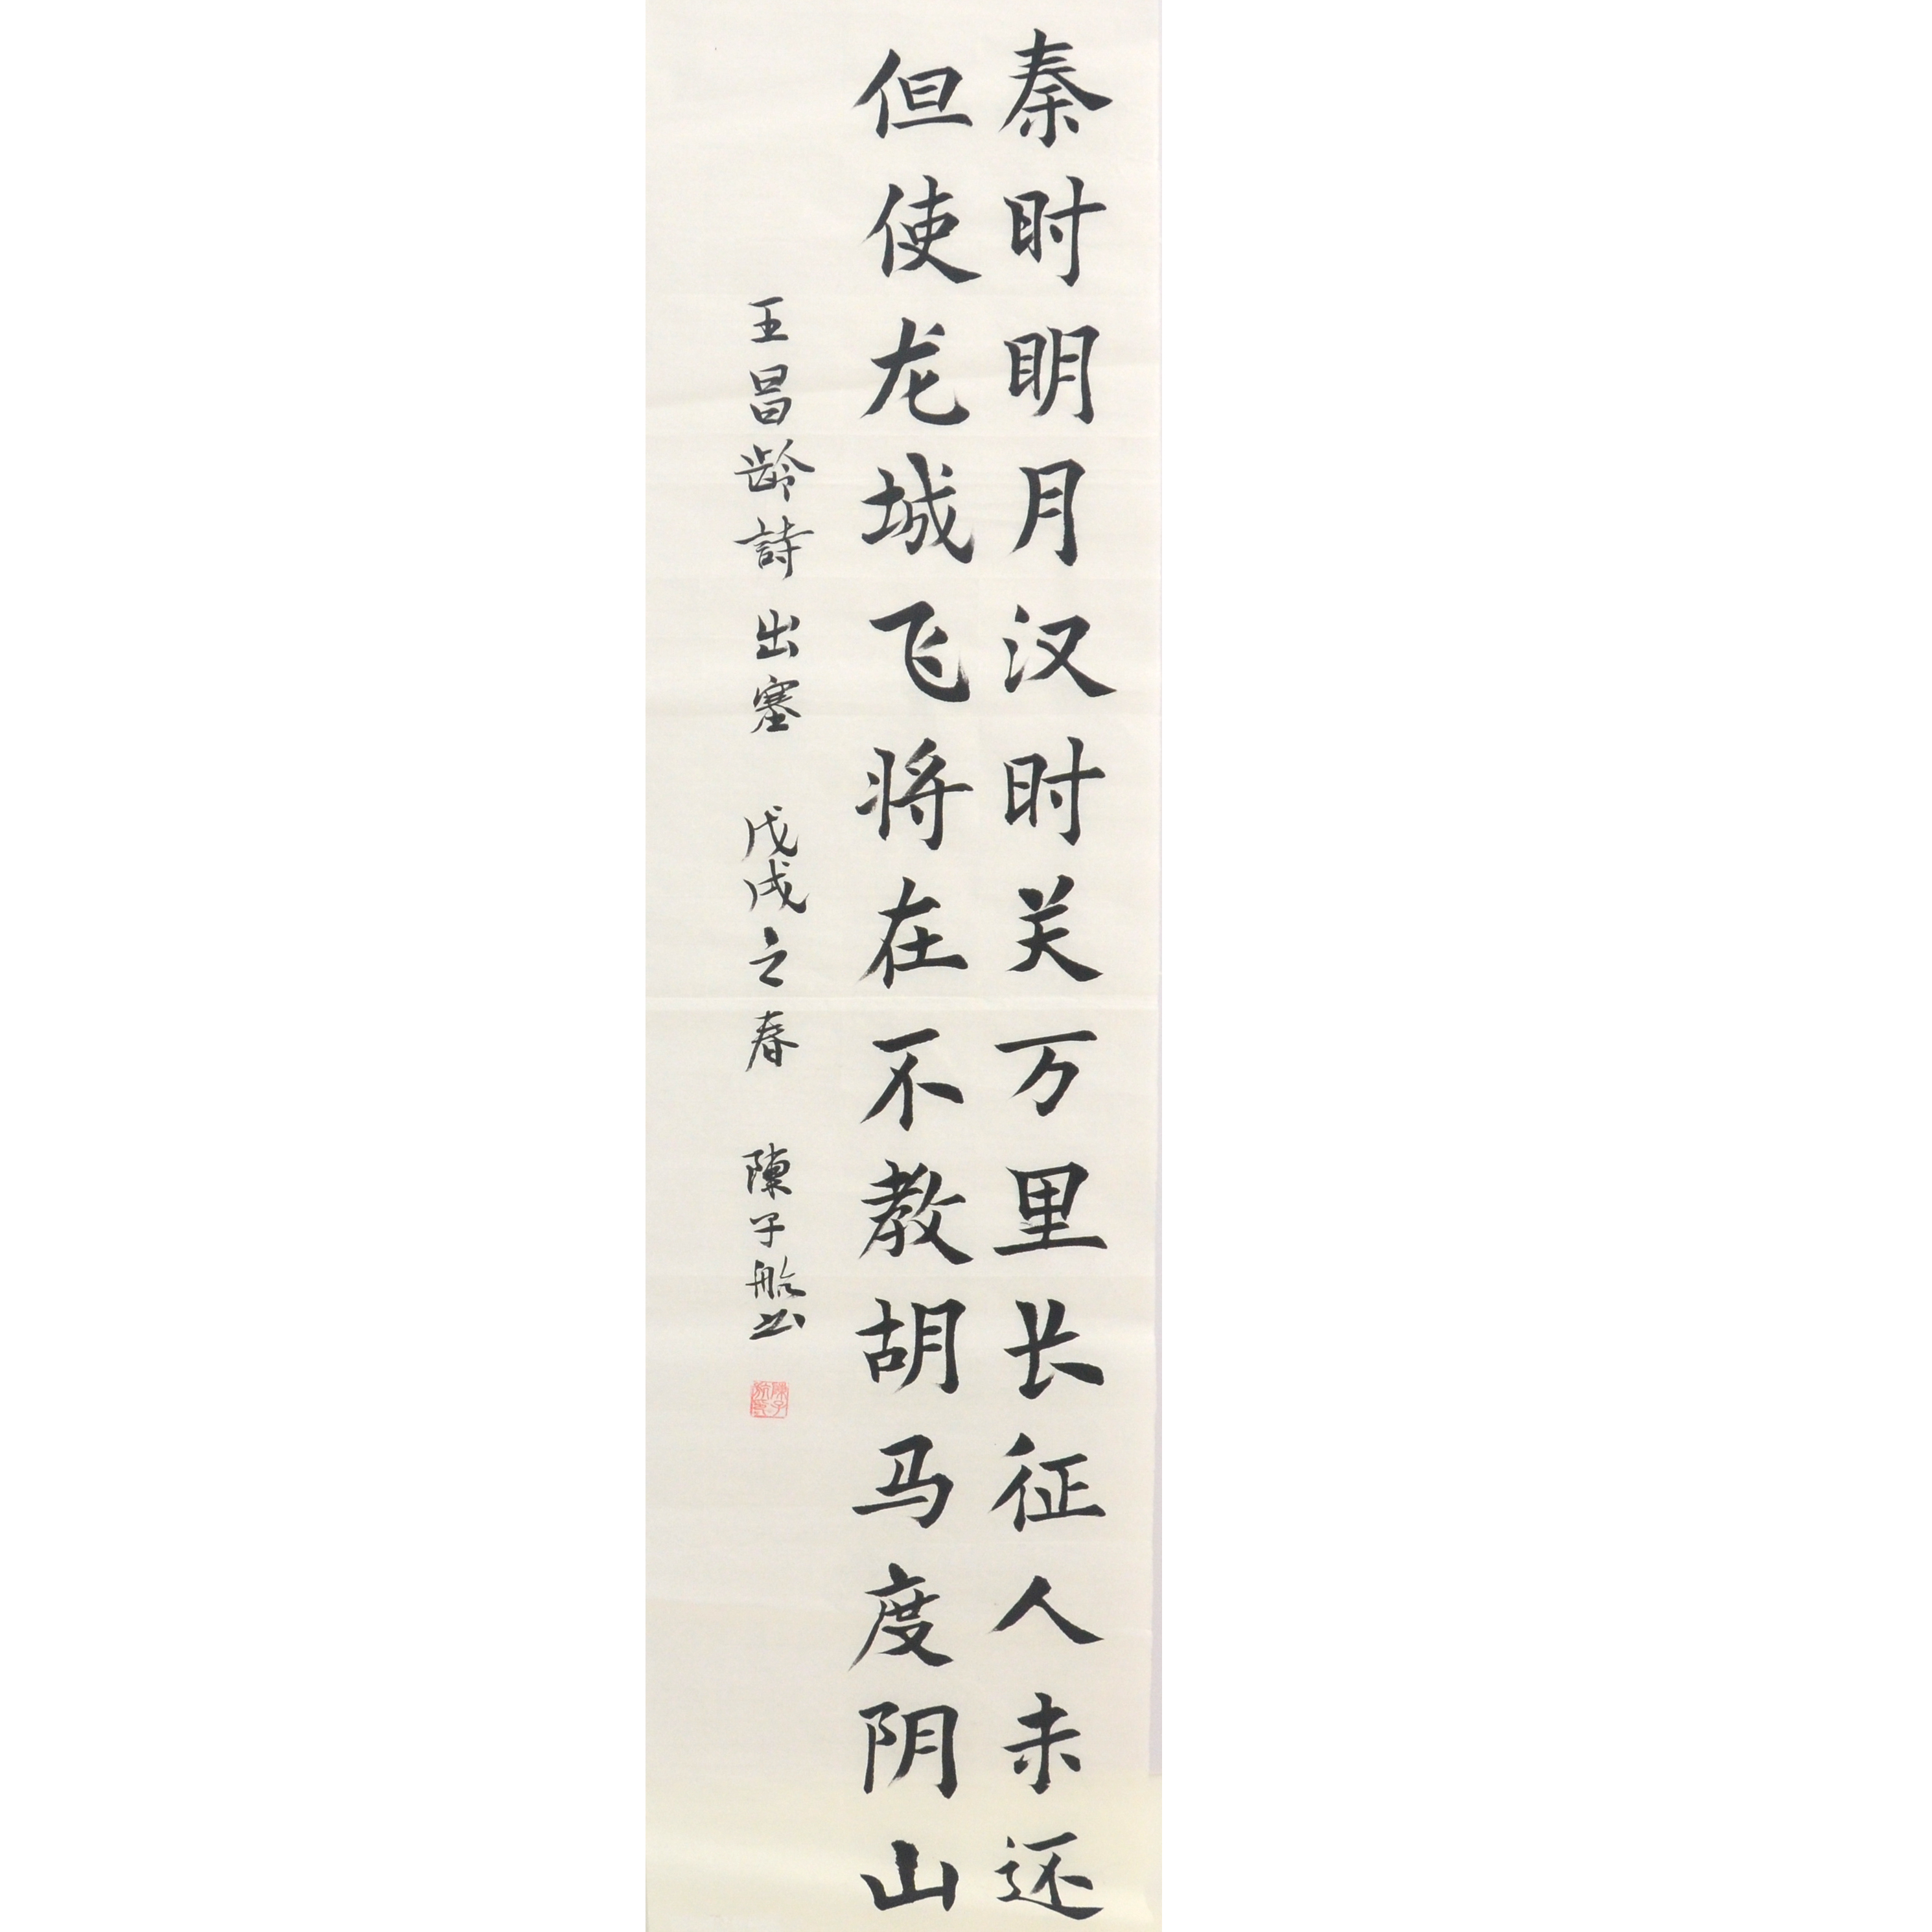 秦时明月汉时关万里长征人未还
但使龙城飞将在不教胡马度阴山
王昌龄詩出塞 戊戌之春 陳子航书